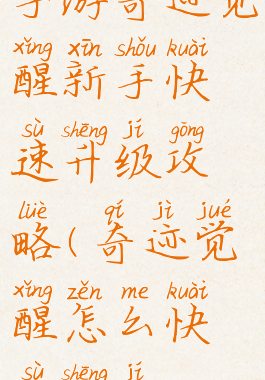 手游奇迹觉
xǐng xīn shǒu kuài
醒新手快
sù shēng jí gōng
速升级攻
lüè qí jì jué
略(奇迹觉
xǐng zěn me kuài
醒怎么快
sù shēng jí